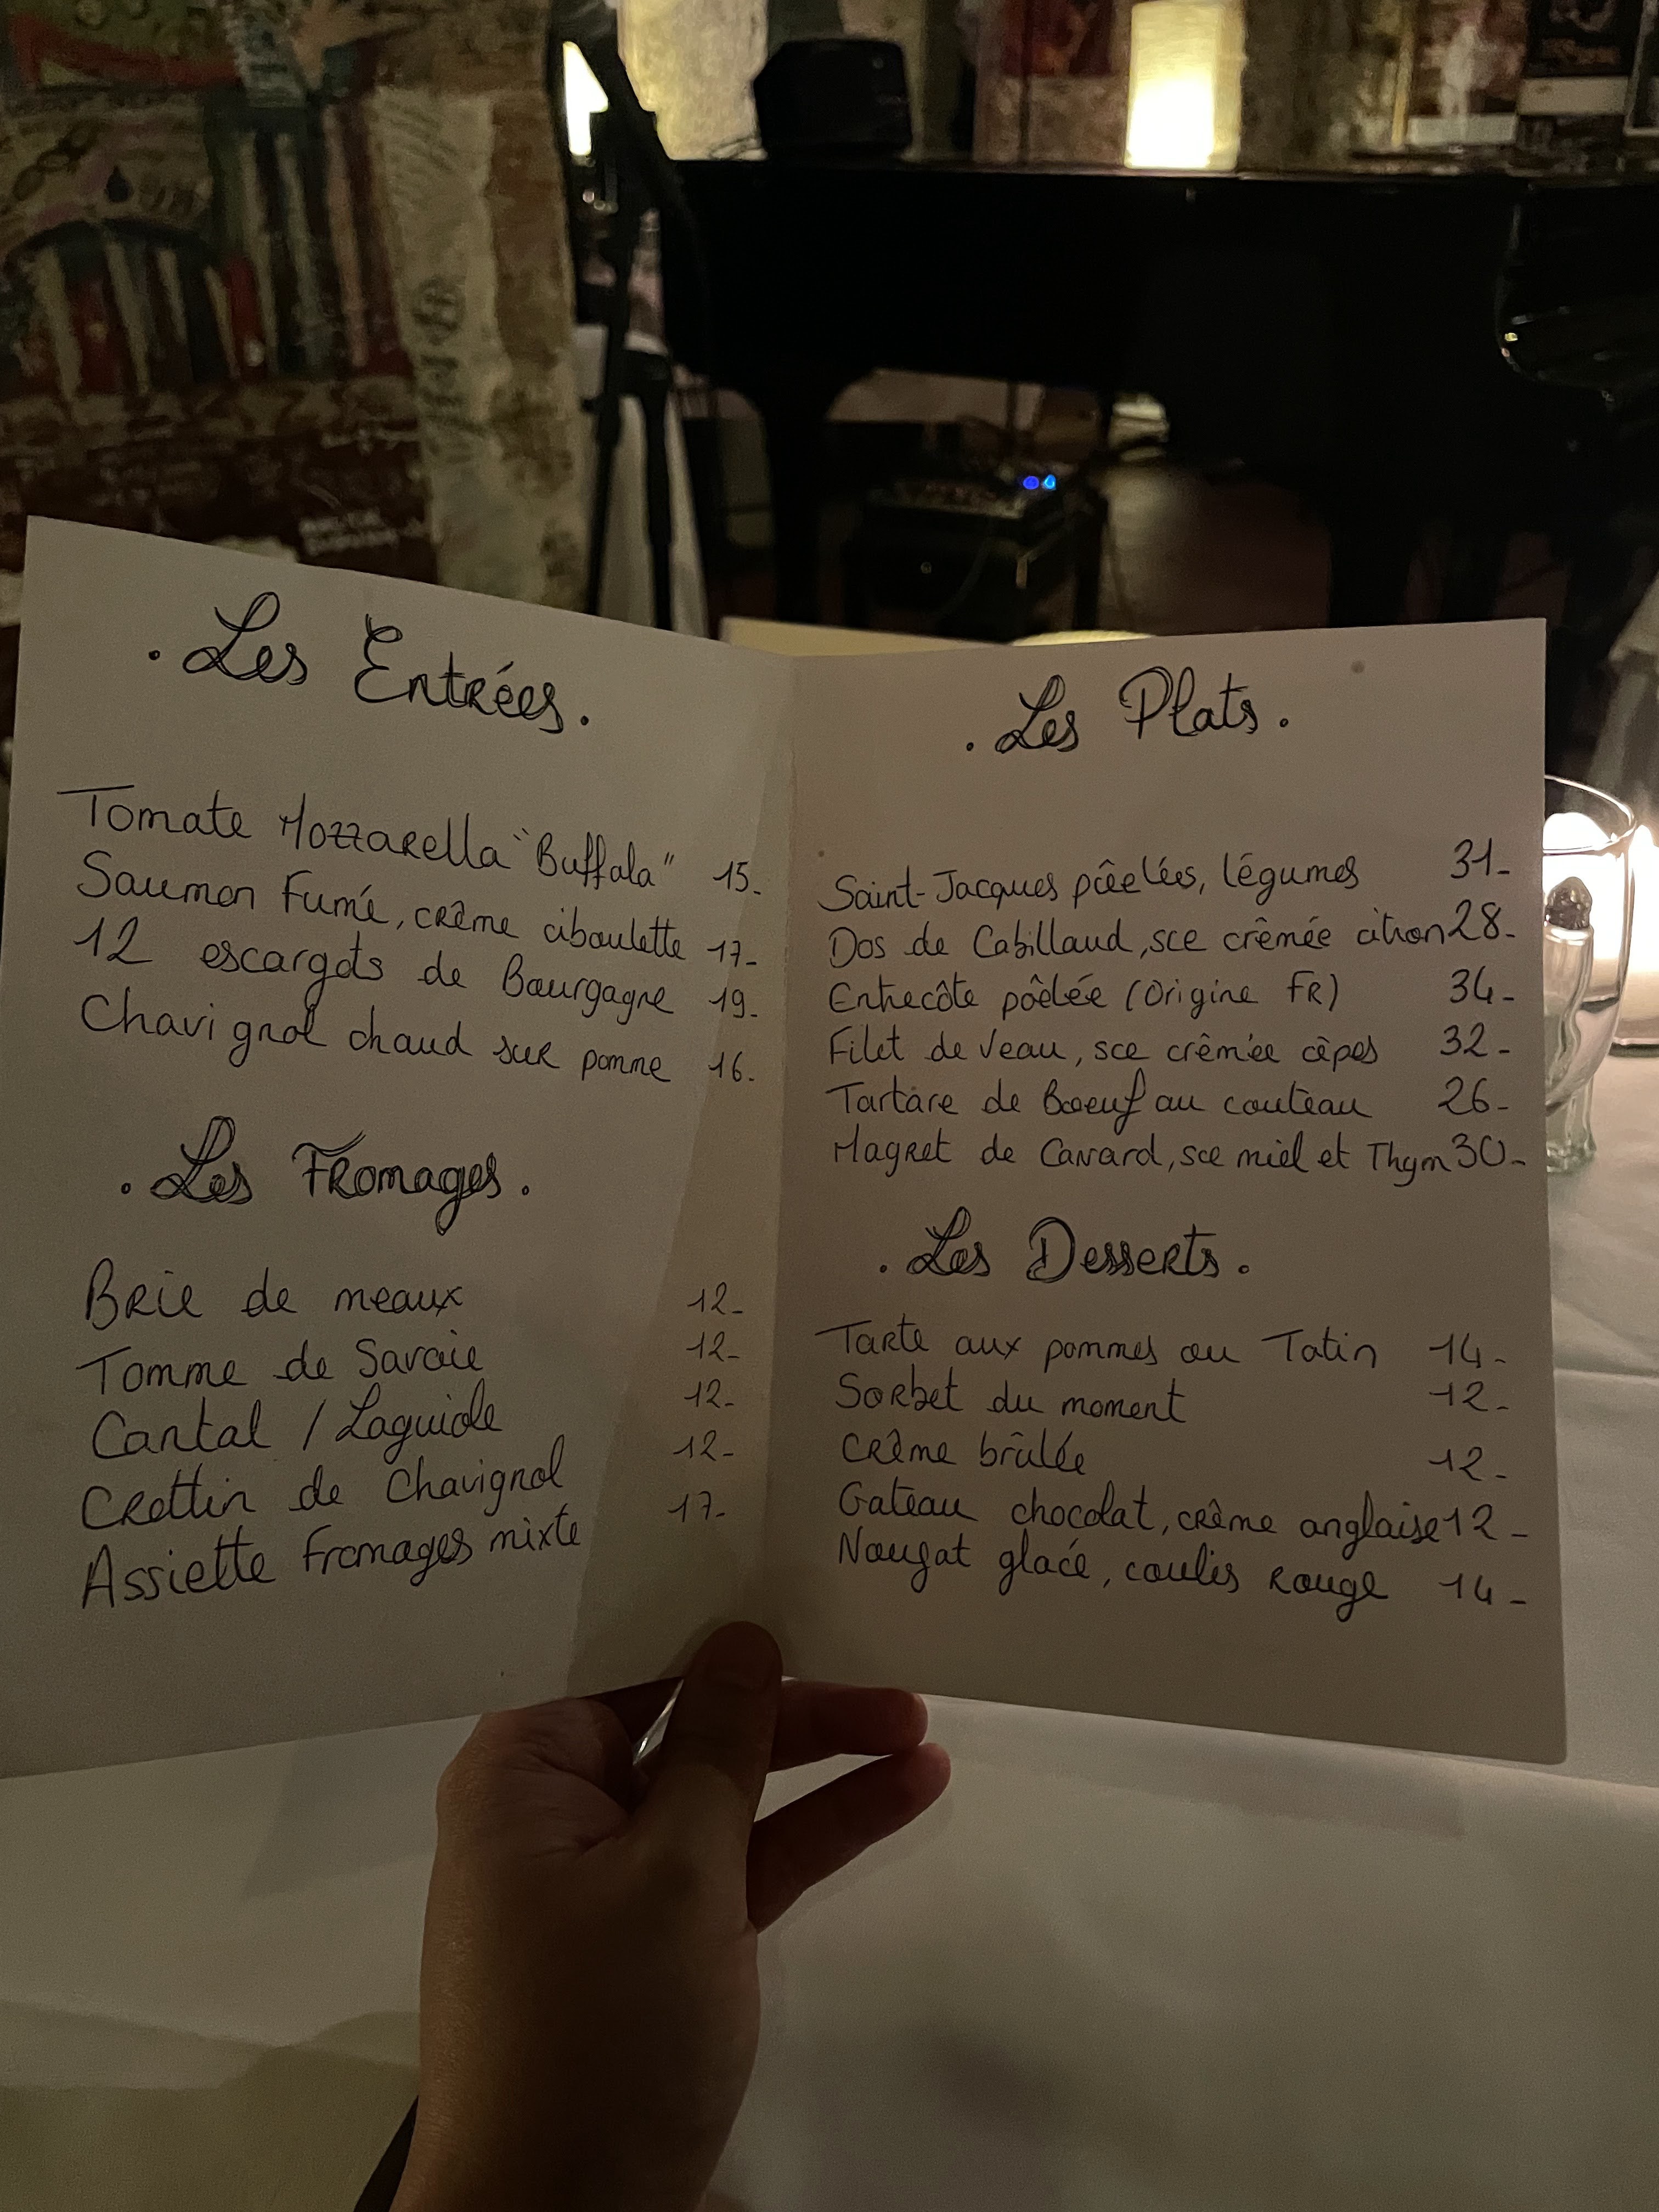 . Les Entrées.
Tomate Mozzarella "Buffala" 15-
Saumon Fumé, crème ciboulette 17-
12 escargots de Bourgogne 19-
Chavignol chaud sur pomme 16-
. Les Fromages.
Brie de meaux 12-
Tomme de Savoie 12-
Cantal / Laguiole 12-
Crottin de Chavignol 12-
Assiette Fromages mixte 17-
. Les Plats.
Saint-Jacques pôelées, légumes 31-
Dos de Cabillaud, sce crêmée citron 28-
Entrecôte pôelée (Origine FR) 34-
Filet de Veau, sce crêmée cèpes 32-
Tartare de Boeuf au couteau 26-
Magret de Canard, sce miel et Thym 30-
. Les Desserts.
Tarte aux pommes ou Tatin 14-
Sorbet du moment 12-
Crème brûlée 12-
Gateau chocolat, crème anglaise 12-
Nougat glacé, coulis rouge 14-